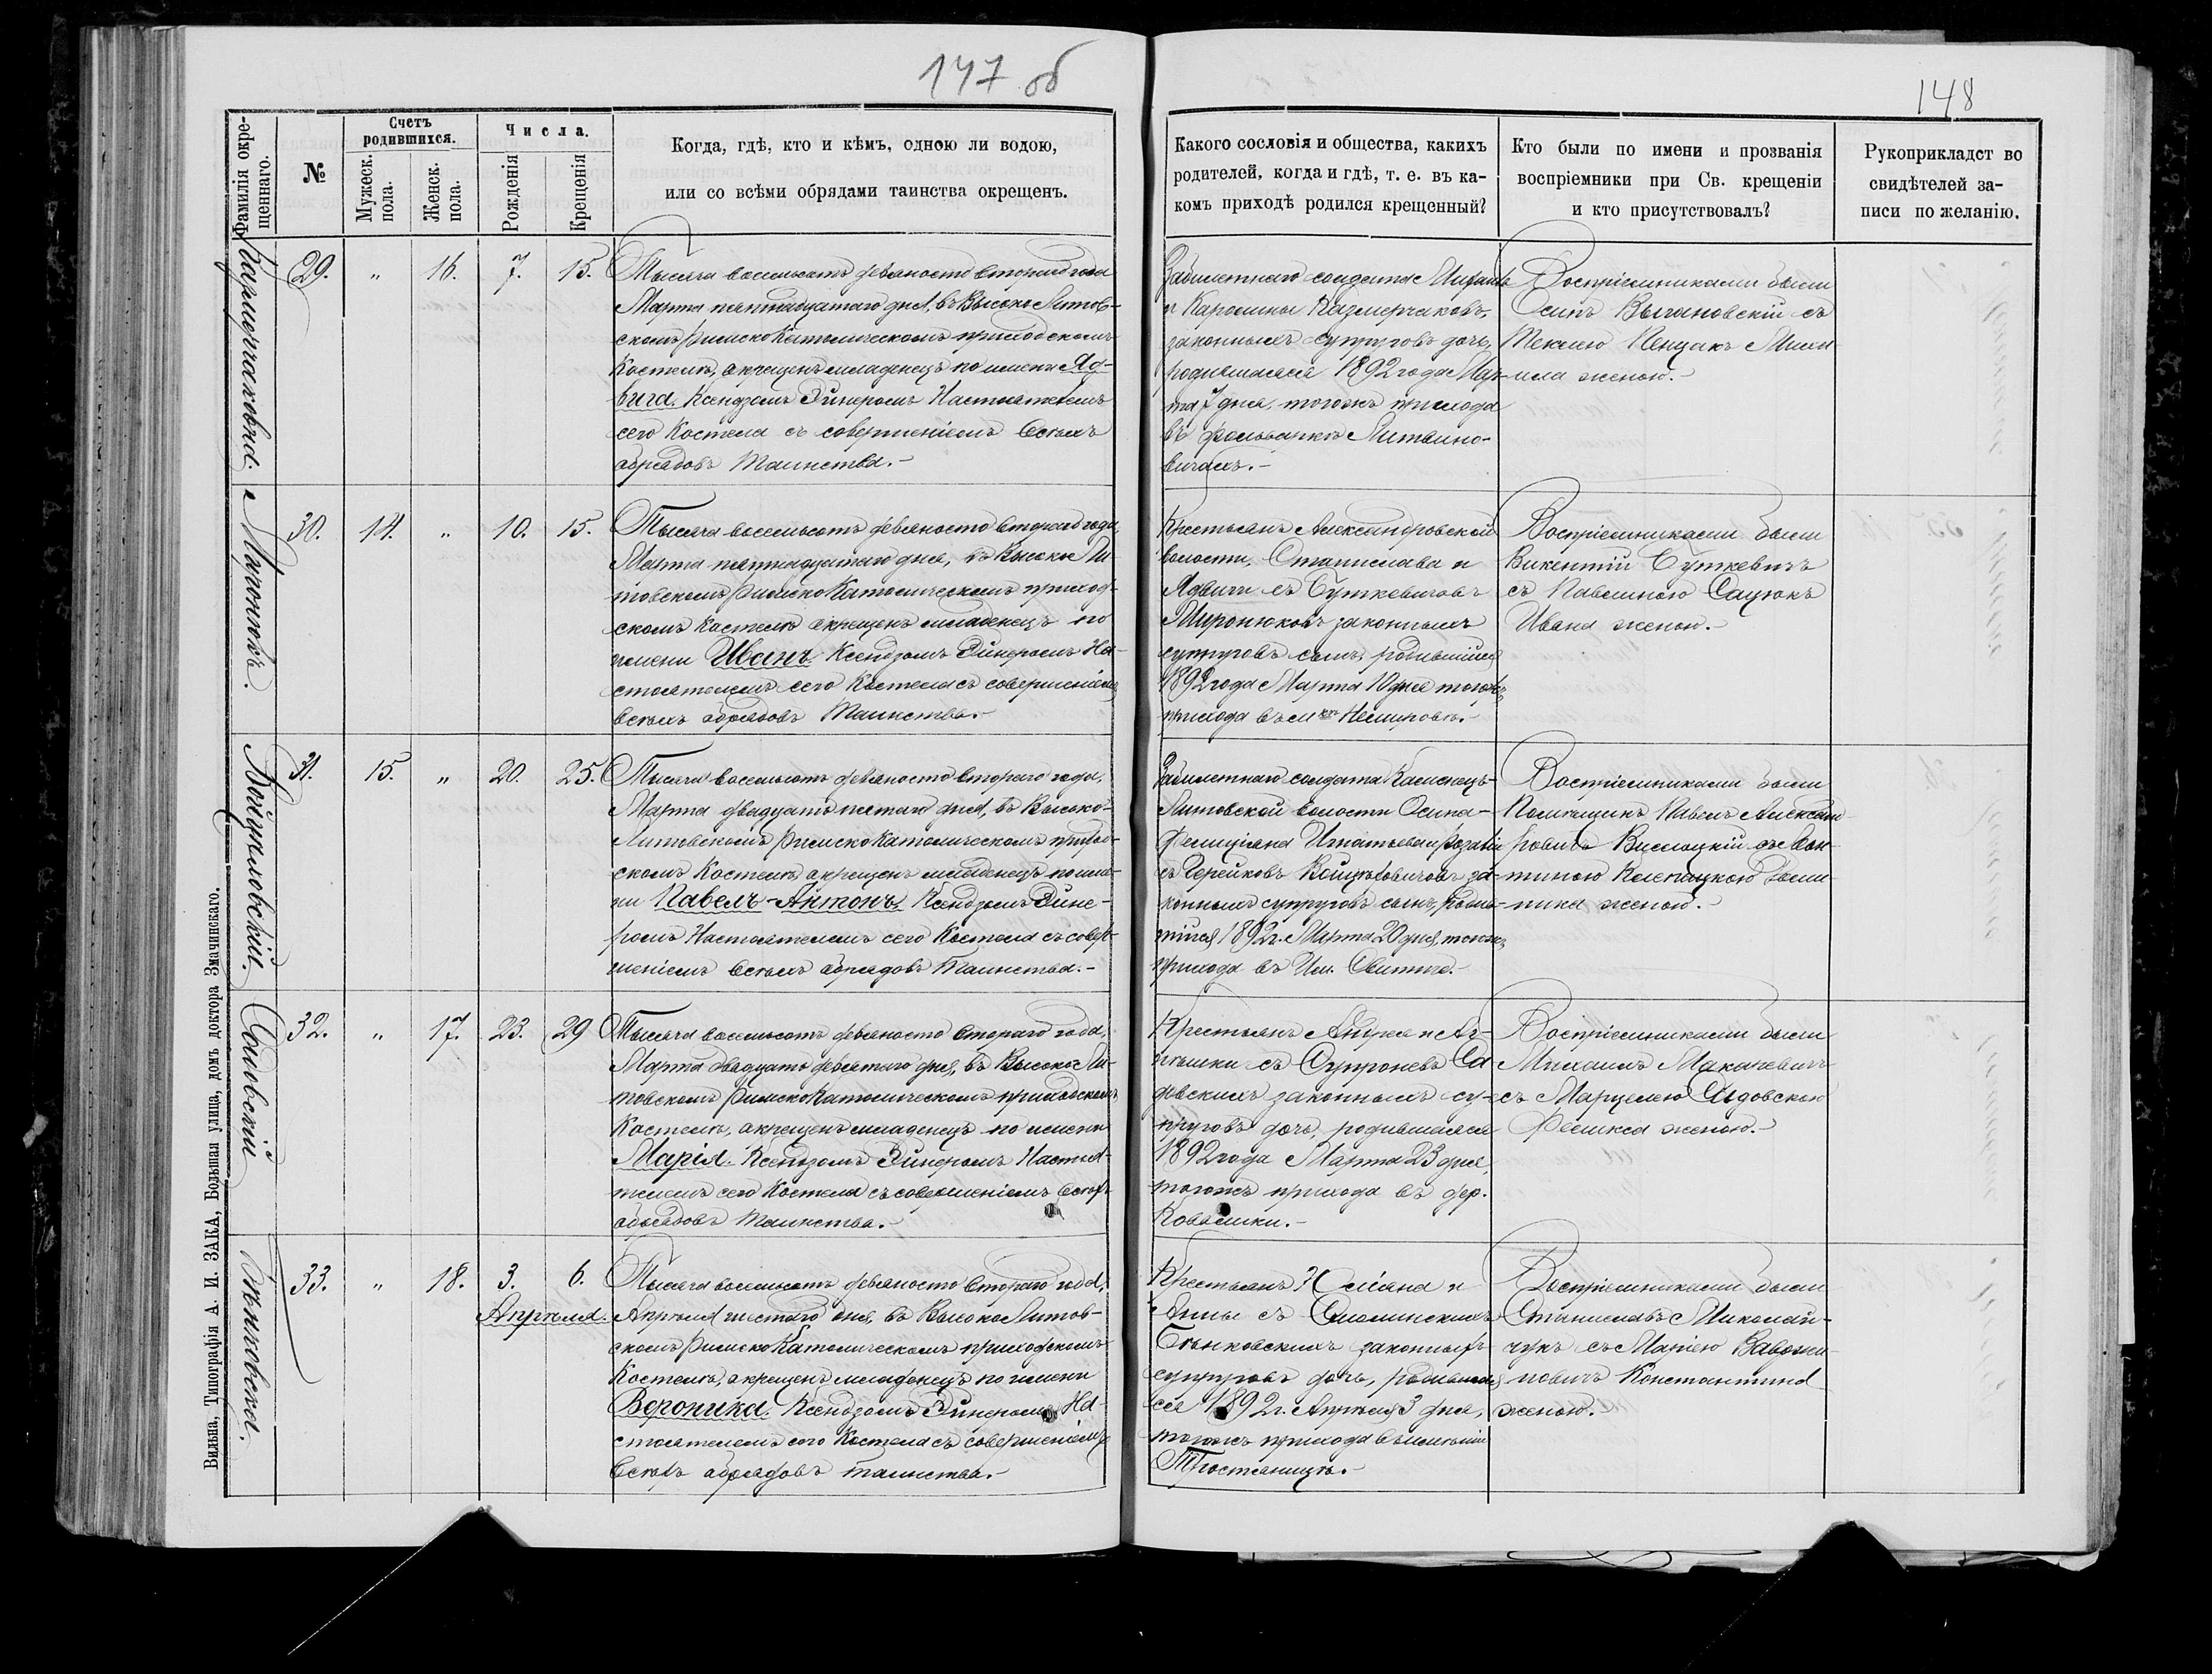 147 об
148
Фамилія окре-
щеннаго.
№
Счетъ
родившихся.
Мужеск.
пола.
Женск.
пола.
Числа.
Рожденія
Крещенія
Когда, гдѣ, кто и кѣмъ, одною ли водою,
или со всѣми обрядами таинства окрещенъ.
Какого сословія и общества, какихъ
родителей, когда и гдѣ, т. е. въ ка-
комъ приходѣ родился крещенный?
Кто были по имени и прозванія
воспріемники при Св. крещеніи
и кто присутствовалъ?
Рукоприкладст во
свидѣтелей за-
писи по желанію.
29.
"
16.
7.
15.
Тысяча восемьсотъ девяносто втораго года
Марта пятнадцатаго дня, въ Высоко Литов-
скомъ Римско Католическомъ приходскомъ
Костелѣ, окрещенъ младенецъ по имени Яд-
вига. Ксендзомъ Эйнеромъ Настоятелемъ
сего Костела съ совершеніемъ всѣхъ
обрядовъ Таинства.-
Забилетнаго солдата Михаила
и Каролины Казмерчаковъ,
законныхъ супруговъ дочь,
родившаяся 1892 года Мар-
та 7 дня, тогожъ прихода
въ фольваркѣ Литвино-
вичахъ.-
Воспріемниками были
Осипъ Выгановскій съ
Теклею Пенцакъ Миха
ила женою.-
Миронюкъ.
30.
14.
"
10.
15.
Тысяча восемьсотъ девяносто втораго года
Марта пятнадцатаго дня, въ Высоко Ли-
товскомъ Римско Католическомъ приход-
скомъ Костелѣ окрещенъ младенецъ по
имени Иванъ. Ксендзомъ Эйнеромъ На-
стоятелемъ сего Костела съ совершеніемъ
всѣхъ обрядовъ Таинства.-
Крестьянъ Александровской
волости, Станислава и
Ядвиги съ Суткевичовъ
Миронюковъ законныхъ
супруговъ сынъ, родившійся
1892 года Марта 10 дня тогожъ
прихода въ Немировѣ.-
Воспріемниками были
Викентій Суткевичъ
съ Павлиною Сацюкъ
Ивана женою.-
Войцеховскій.
31.
15.
"
20.
25.
Тысяча восемьсотъ девяносто втораго года,
Марта двадцать пятаго дня, въ Высоко-
Литовскомъ Римско Католическомъ приход-
скомъ Костелѣ окрещенъ младенецъ по име-
ни Павелъ-Антонъ. Ксендзомъ Эйне-
ромъ Настоятелемъ сего Костела съ совер-
шеніемъ всѣхъ обрядовъ Таинства.-
Забилетнаго солдата Каменецъ-
Литовской волости Осипа-
Фелиціяна Игнатьева и Розаліи
законныхъ супруговъ сынъ, родив-
шійся 1892 г. Марта 20 дня, тогожъ
прихода въ Им.
Воспріемниками были
Помѣщикъ Павелъ Александ-
ровичъ
женою.
Садовскій
32.
"
17.
23.
29
Тысяча восемьсотъ девяносто втораго года,
Марта двадцать девятаго дня, въ Высоко Ли-
товскомъ Римско Католическомъ приходскомъ
Костелѣ, окрещенъ младенецъ по имени
Марія. Ксендзомъ Эйнеромъ Настоя-
телемъ сего Костела съ совершеніемъ всѣхъ
обрядовъ Таинства.-
Крестьянъ Андрея и Аг-
нѣшки съ Супроневъ Са-
довскихъ законныхъ су-
пруговъ дочь, родившаяся
1892 года Марта 23 дня,
тогожъ прихода въ дер.
Ковалики.-
Воспріемниками были
Михаилъ Макаревичъ
съ Марцелею Садовскою
Феликса женою.-
Сѣньковская.
33.
"
18.
3.
6.
Апрѣля.
Тысяча восемьсотъ девяносто втораго года,
Апрѣля шестаго дня, въ Высоко Литов-
скомъ Римско Католическомъ приходскомъ
Костелѣ, окрещенъ младенецъ по имени
Вероника. Ксендзомъ Эйнеромъ На-
стоятелемъ сего Костела съ совершеніемъ
всѣхъ обрядовъ таинства.-
Крестьянъ Юліана и
Анны съ Смолинскихъ
Сѣньковскихъ законныхъ
супруговъ дочь, родившая
ся 1892 г. Апрѣля 3 дня,
тогожъ прихода въ имѣніи
Тростяницѣ.-
Воспріемниками были
Станиславъ Миколай-
чукъ съ Маріею
Константина
женою.-
Вильна, Типографія А. И. ЗАКА, Большая улица, домъ доктора Змачинскаго.